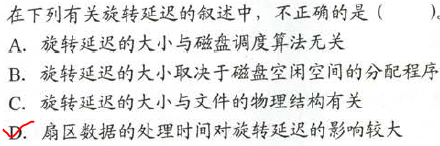 在下列有关旋转延迟的叙述中，不正确的是（　　）.
A. 旋转延迟的大小与磁盘调度算法无关
B. 旋转延迟的大小取决于磁盘空闲空间的分配程序
C. 旋转延迟的大小与文件的物理结构有关
D. 扇区数据的处理时间对旋转延迟的影响较大